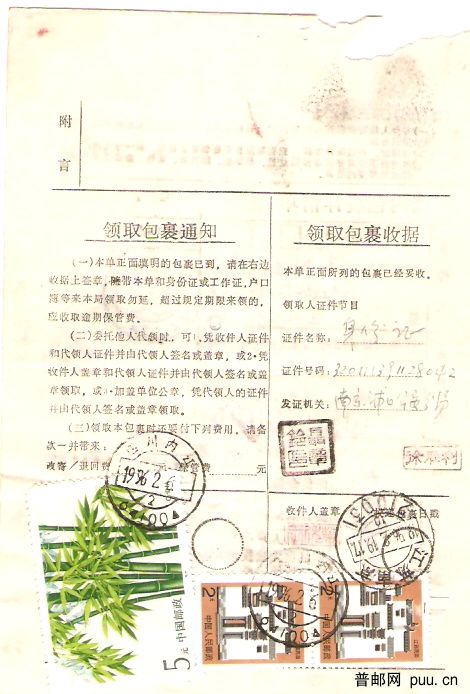 附
言
领取包裹通知
(一)本单正面填明的包裹已到，请在右边
收据上签章，随带本单和身份证或工作证、户口
簿等来本局领取勿延，超过规定期限来领的，
应收取逾期保管费。
(二)委托他人代领时，可1.凭收件人证件
和代领人证件并由代领人签名或盖章，或2.凭
收件人盖章和代领人证件并由代领人签名或盖
章领取，或3.加盖单位公章，凭代领人的证件
并由代领人签名或盖章领取。
(三)领取本包裹时还要付下列费用，请备
款一并带来：
改寄/退回费 元 保管费 元
领取包裹收据
本单正面所列的包裹已经妥收。
领取人证件节目
证件名称：
证件号码：
发证机关：南京
收件人盖章 投递局日戳
1996.2.
江苏南京
5元 中国邮政
2元 中国人民邮政
2元 中国人民邮政
普邮网 puu.cn